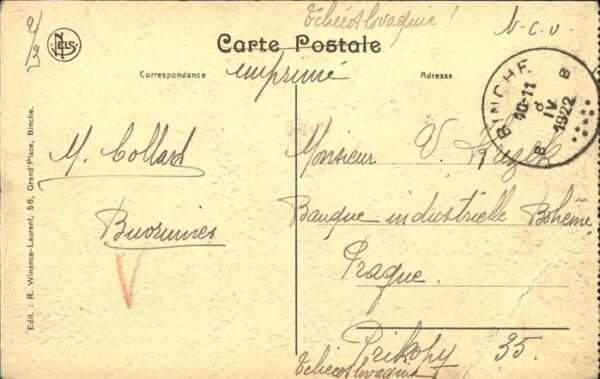 2/3
NELS
Tchécoslovaquie!
N.C.V.
Carte Postale
imprimé
Correspondance
Adresse
BINCHE
10-11
8
IV
1922
B B
M. Collard
Monsieur V.
Banque industrielle Bohême
Prague.
Prikopy 35.
Tchécoslovaquie
Edit. : R. Winance-Laurent, 58, Grand'Place, Binche.